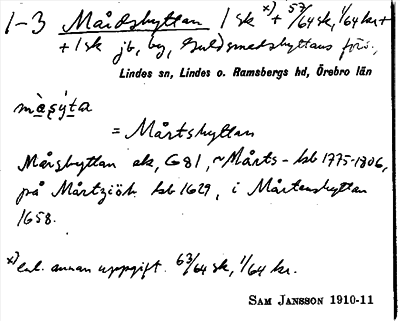 1-3 Mårdshyttan 1 sk x)+ 57/64 sk, 1/64 kr +
+ 1 sk jb, by, Guldsmedshyttans förs.,
Lindes sn, Lindes o. Ramsbergs hd, Örebro län
màșýta
= Mårtshyttan
Mårshyttan ek, G81, ~Mårts- hb 1775-1806,
på Mårtziöh. hb 1629, i Mårtenshyttan
1658.
x) enl. annan uppgift. 63/64 sk, 1/64 kr.
SAM JANSSON 1910-11